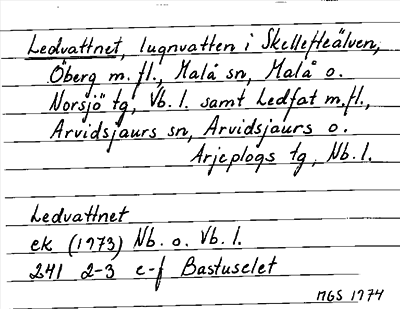 Ledvattnet, lugnvatten i Skellefteälven,
Öberg m.fl., Malå sn, Malå o.
Norsjö tg, Vb. l. samt Ledfat m.fl.,
Arvidsjaurs sn, Arvidsjaurs o.
Arjeplogs tg, Nb. l.
Ledvattnet
ek (1973) Nb. o. Vb. l.
241 2-3 e-f Bastuselet
MGS 1974